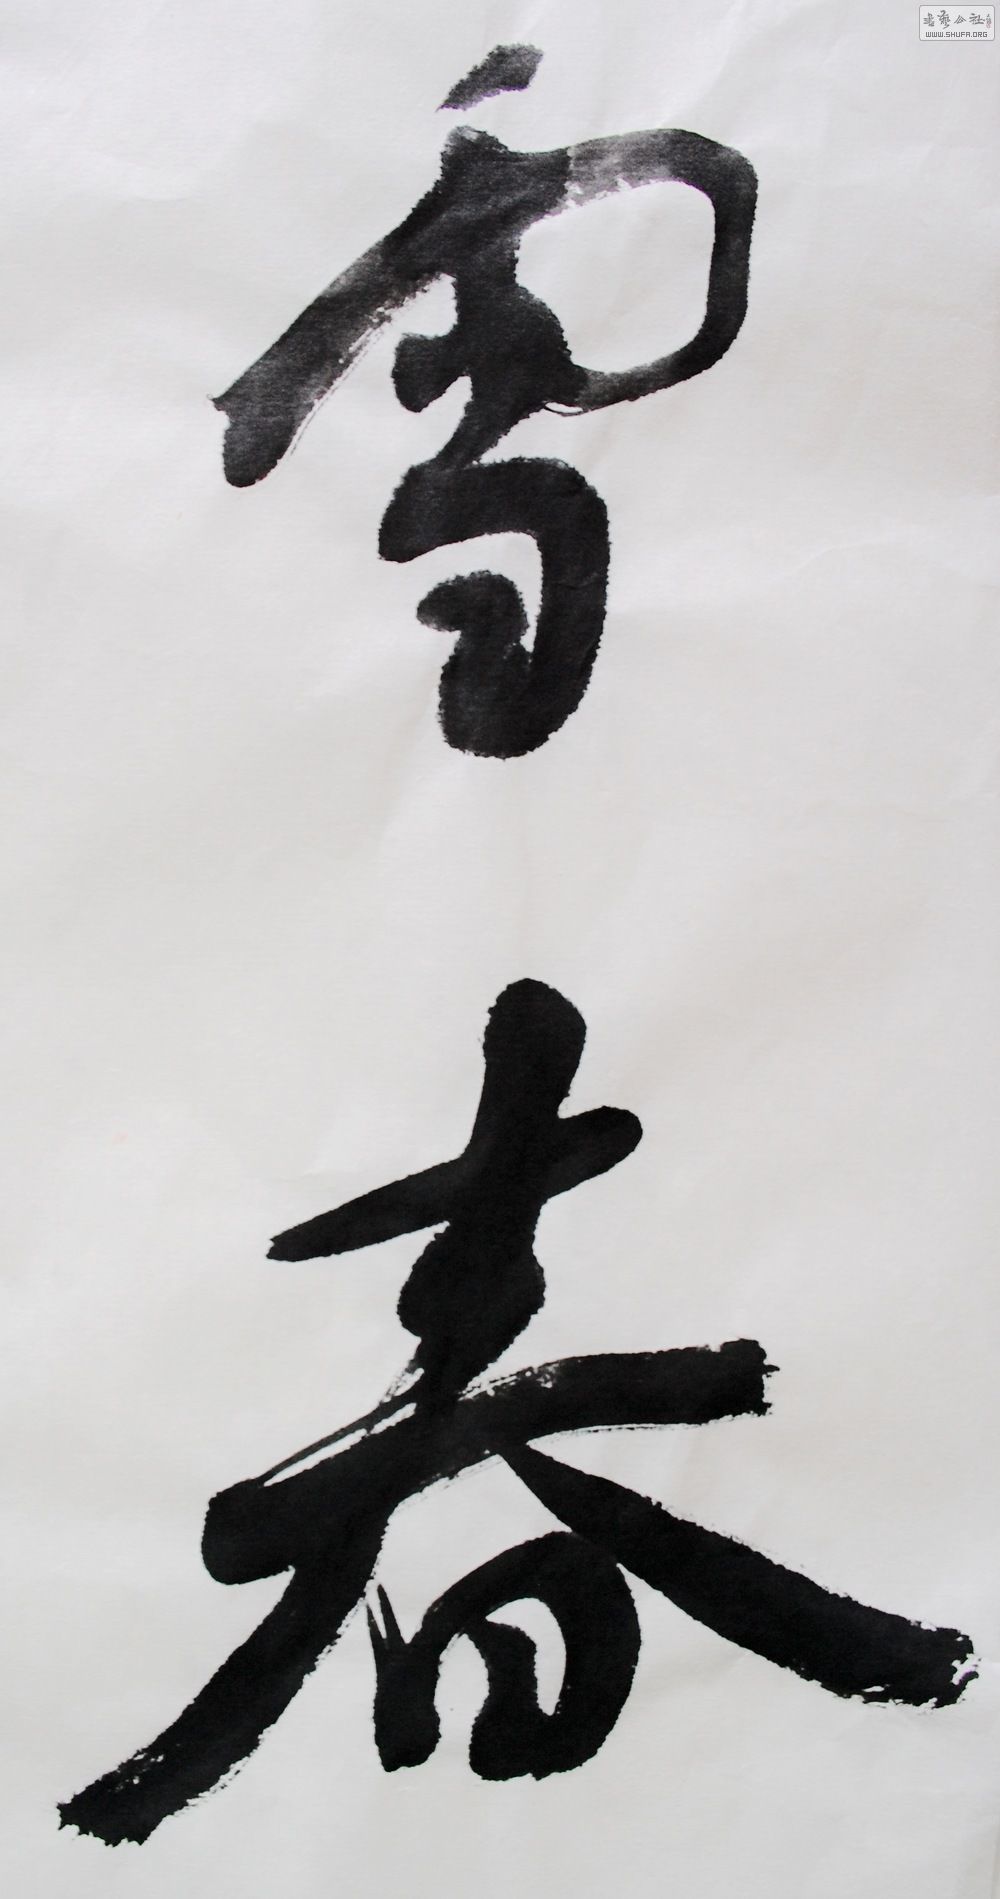 雪
春
書藝公社
WWW.SHUFA.ORG